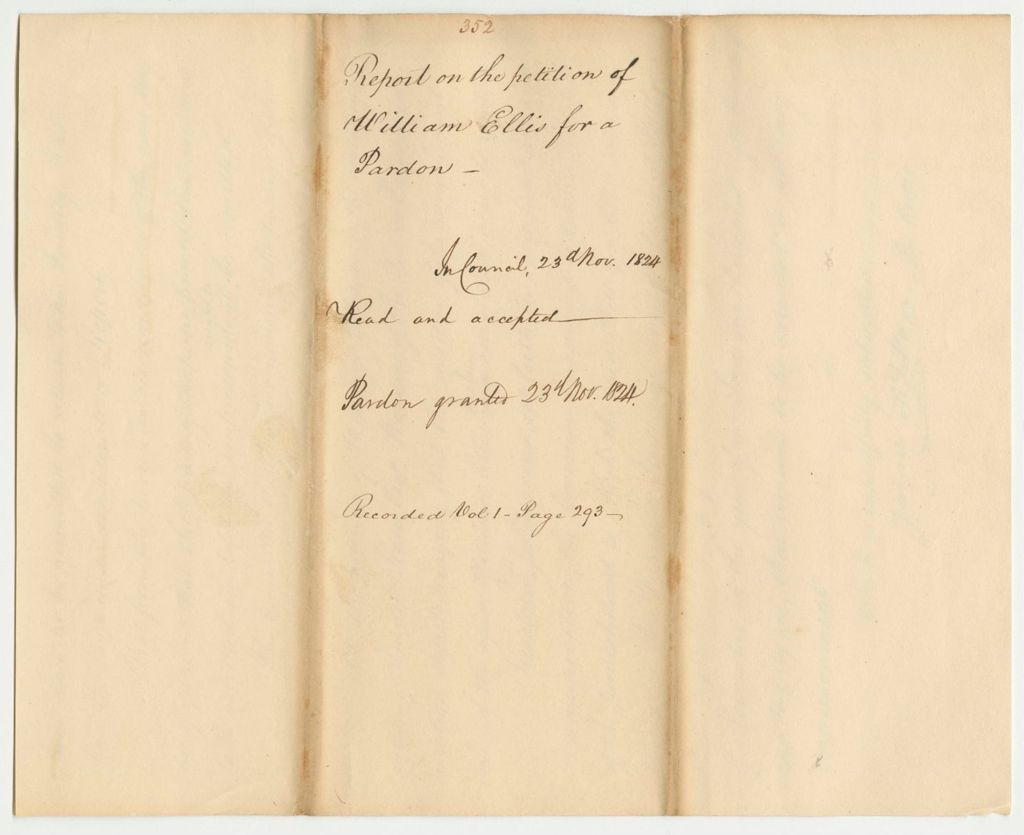 352
Report on the petition of
William Ellis for a
Pardon —
In Council, 23d Nov. 1824
Read and accepted
Pardon granted 23d Nov. 1824.
Recorded Vol 1 - Page 293 -